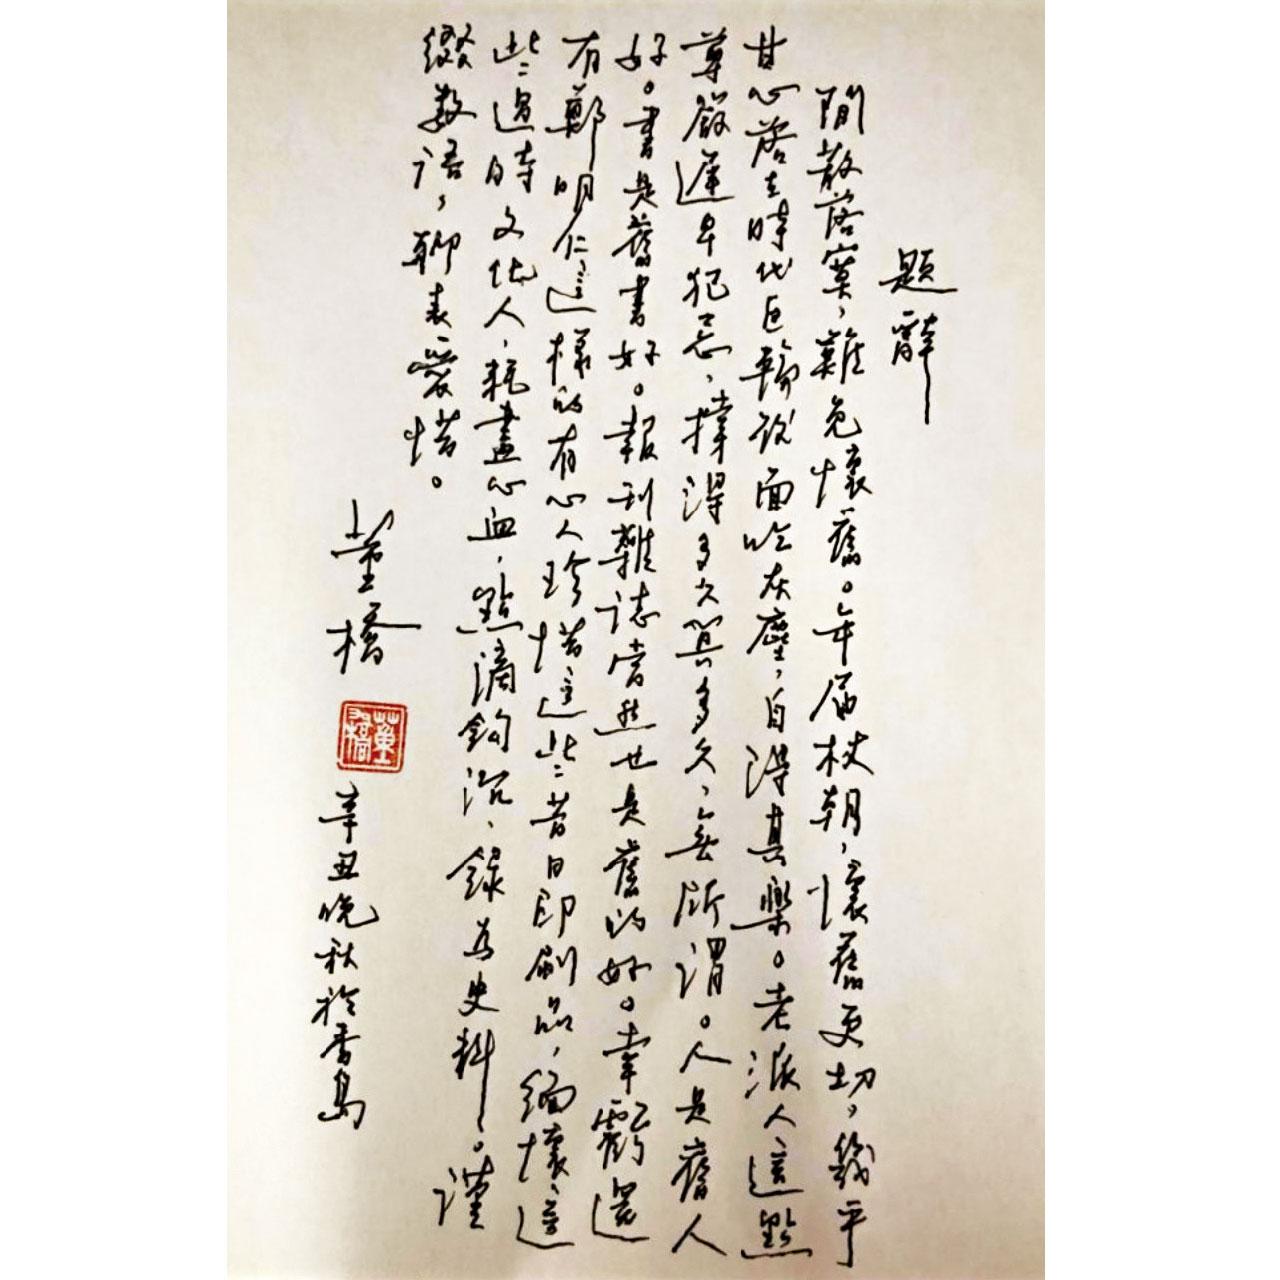 題辭
閒散落寞，難免懷舊。年屆杖朝，懷舊更切，幾乎
甘心落在時代巨輪後面吃灰塵，自得其樂。老派人這點
尊嚴遲早犯忌，撑得多久算多久，無所謂。人是舊人
好。書是舊書好。報刊雜誌當然也是舊的好。幸虧還
有鄭明仁這樣的有心人珍惜這些昔日印刷品，緬懷這
些過時文化人，耗盡心血，點滴鈎沉，錄為史料。謹
綴數語，聊表愛惜。
董橋
董橋
辛丑晚秋於香島